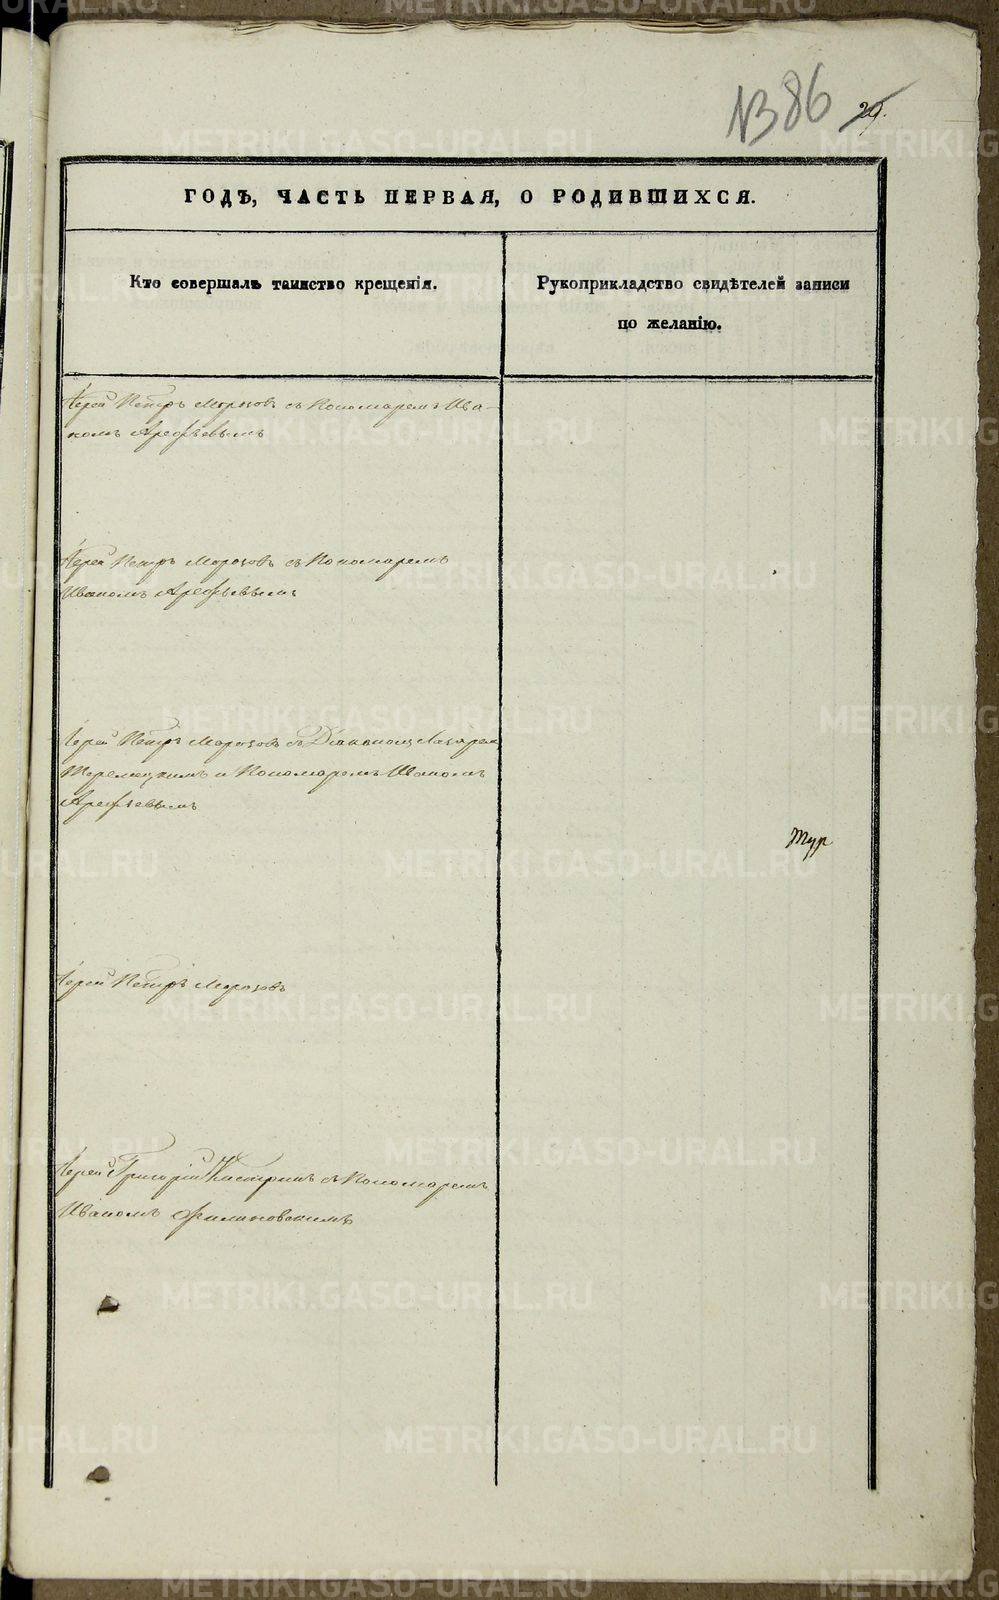 № 386
29.
ГОДЪ, ЧАСТЬ ПЕРВАЯ, О РОДИВШИХСЯ.
Кто совершалъ таинство крещенія.
Рукоприкладство свидѣтелей записи
по желанію.
Іерей Петръ Морозовъ съ Пономаремъ Ива-
номъ Арефьевымъ
Іерей Петръ Морозовъ съ Пономаремъ
Иваномъ Арефьевымъ
Іерей Петръ Морозовъ съ Діакономъ Лазарем
и Пономаремъ Иваномъ
Арефьевымъ
Іерей Петръ Морозовъ
Іерей Григорій съ Пономаремъ
Иваномъ
METRIKI.GASO-URAL.RU